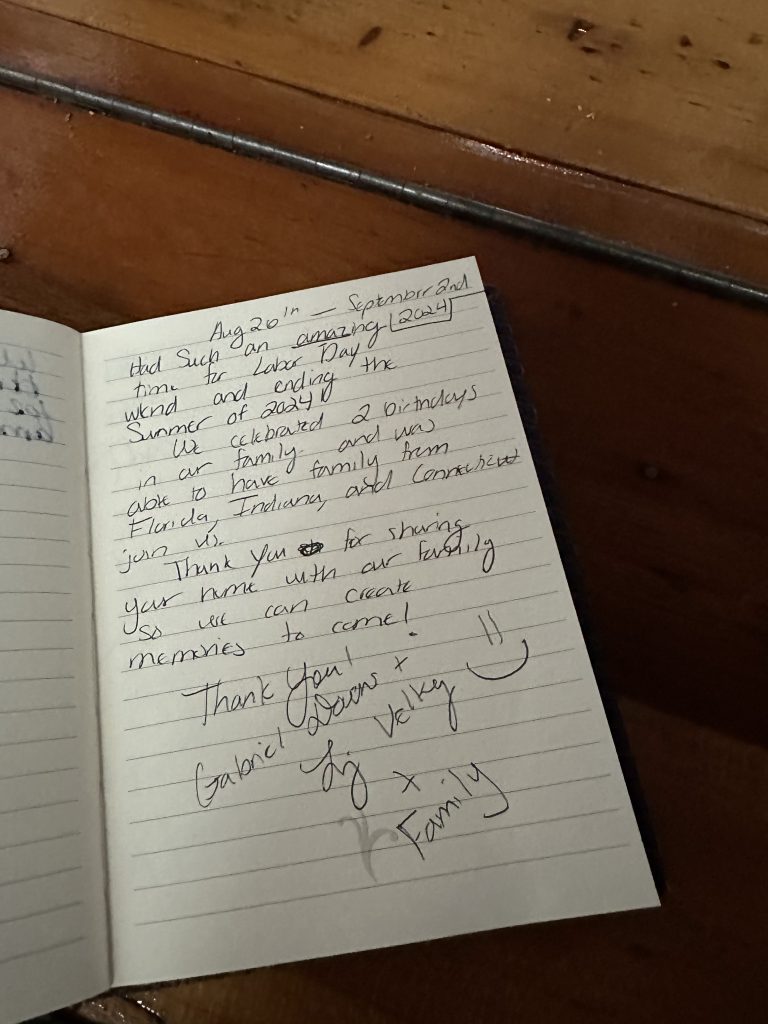 Aug 26th — September 2nd
Had Such an amazing 2024
time for Labor Day
wknd and ending the
Summer of 2024!
We celebrated 2 birthdays
in our family and was
able to have family from
Florida, Indiana, and Connecticut
join us.
Thank you for sharing
your home with our family
so we can create
memories to come!
Thank You!
Gabriel +
Velky
+
Family